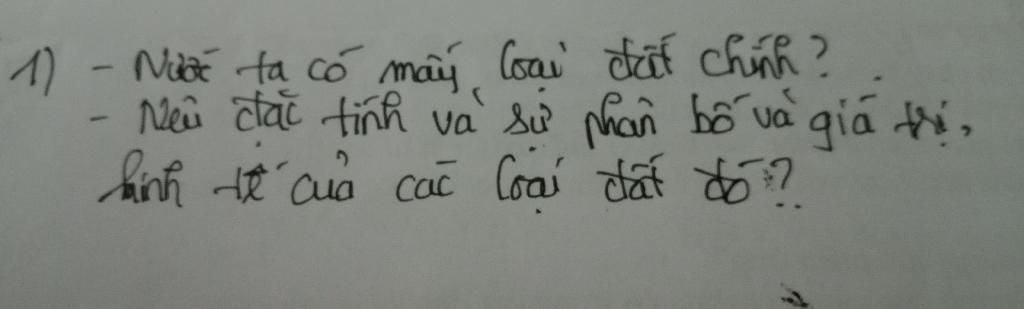 1) - Nước ta có mấy loại đất chính?
- Nêu đặc tính và sự phân bố và giá trị,
kinh tế của các loại đất đó?